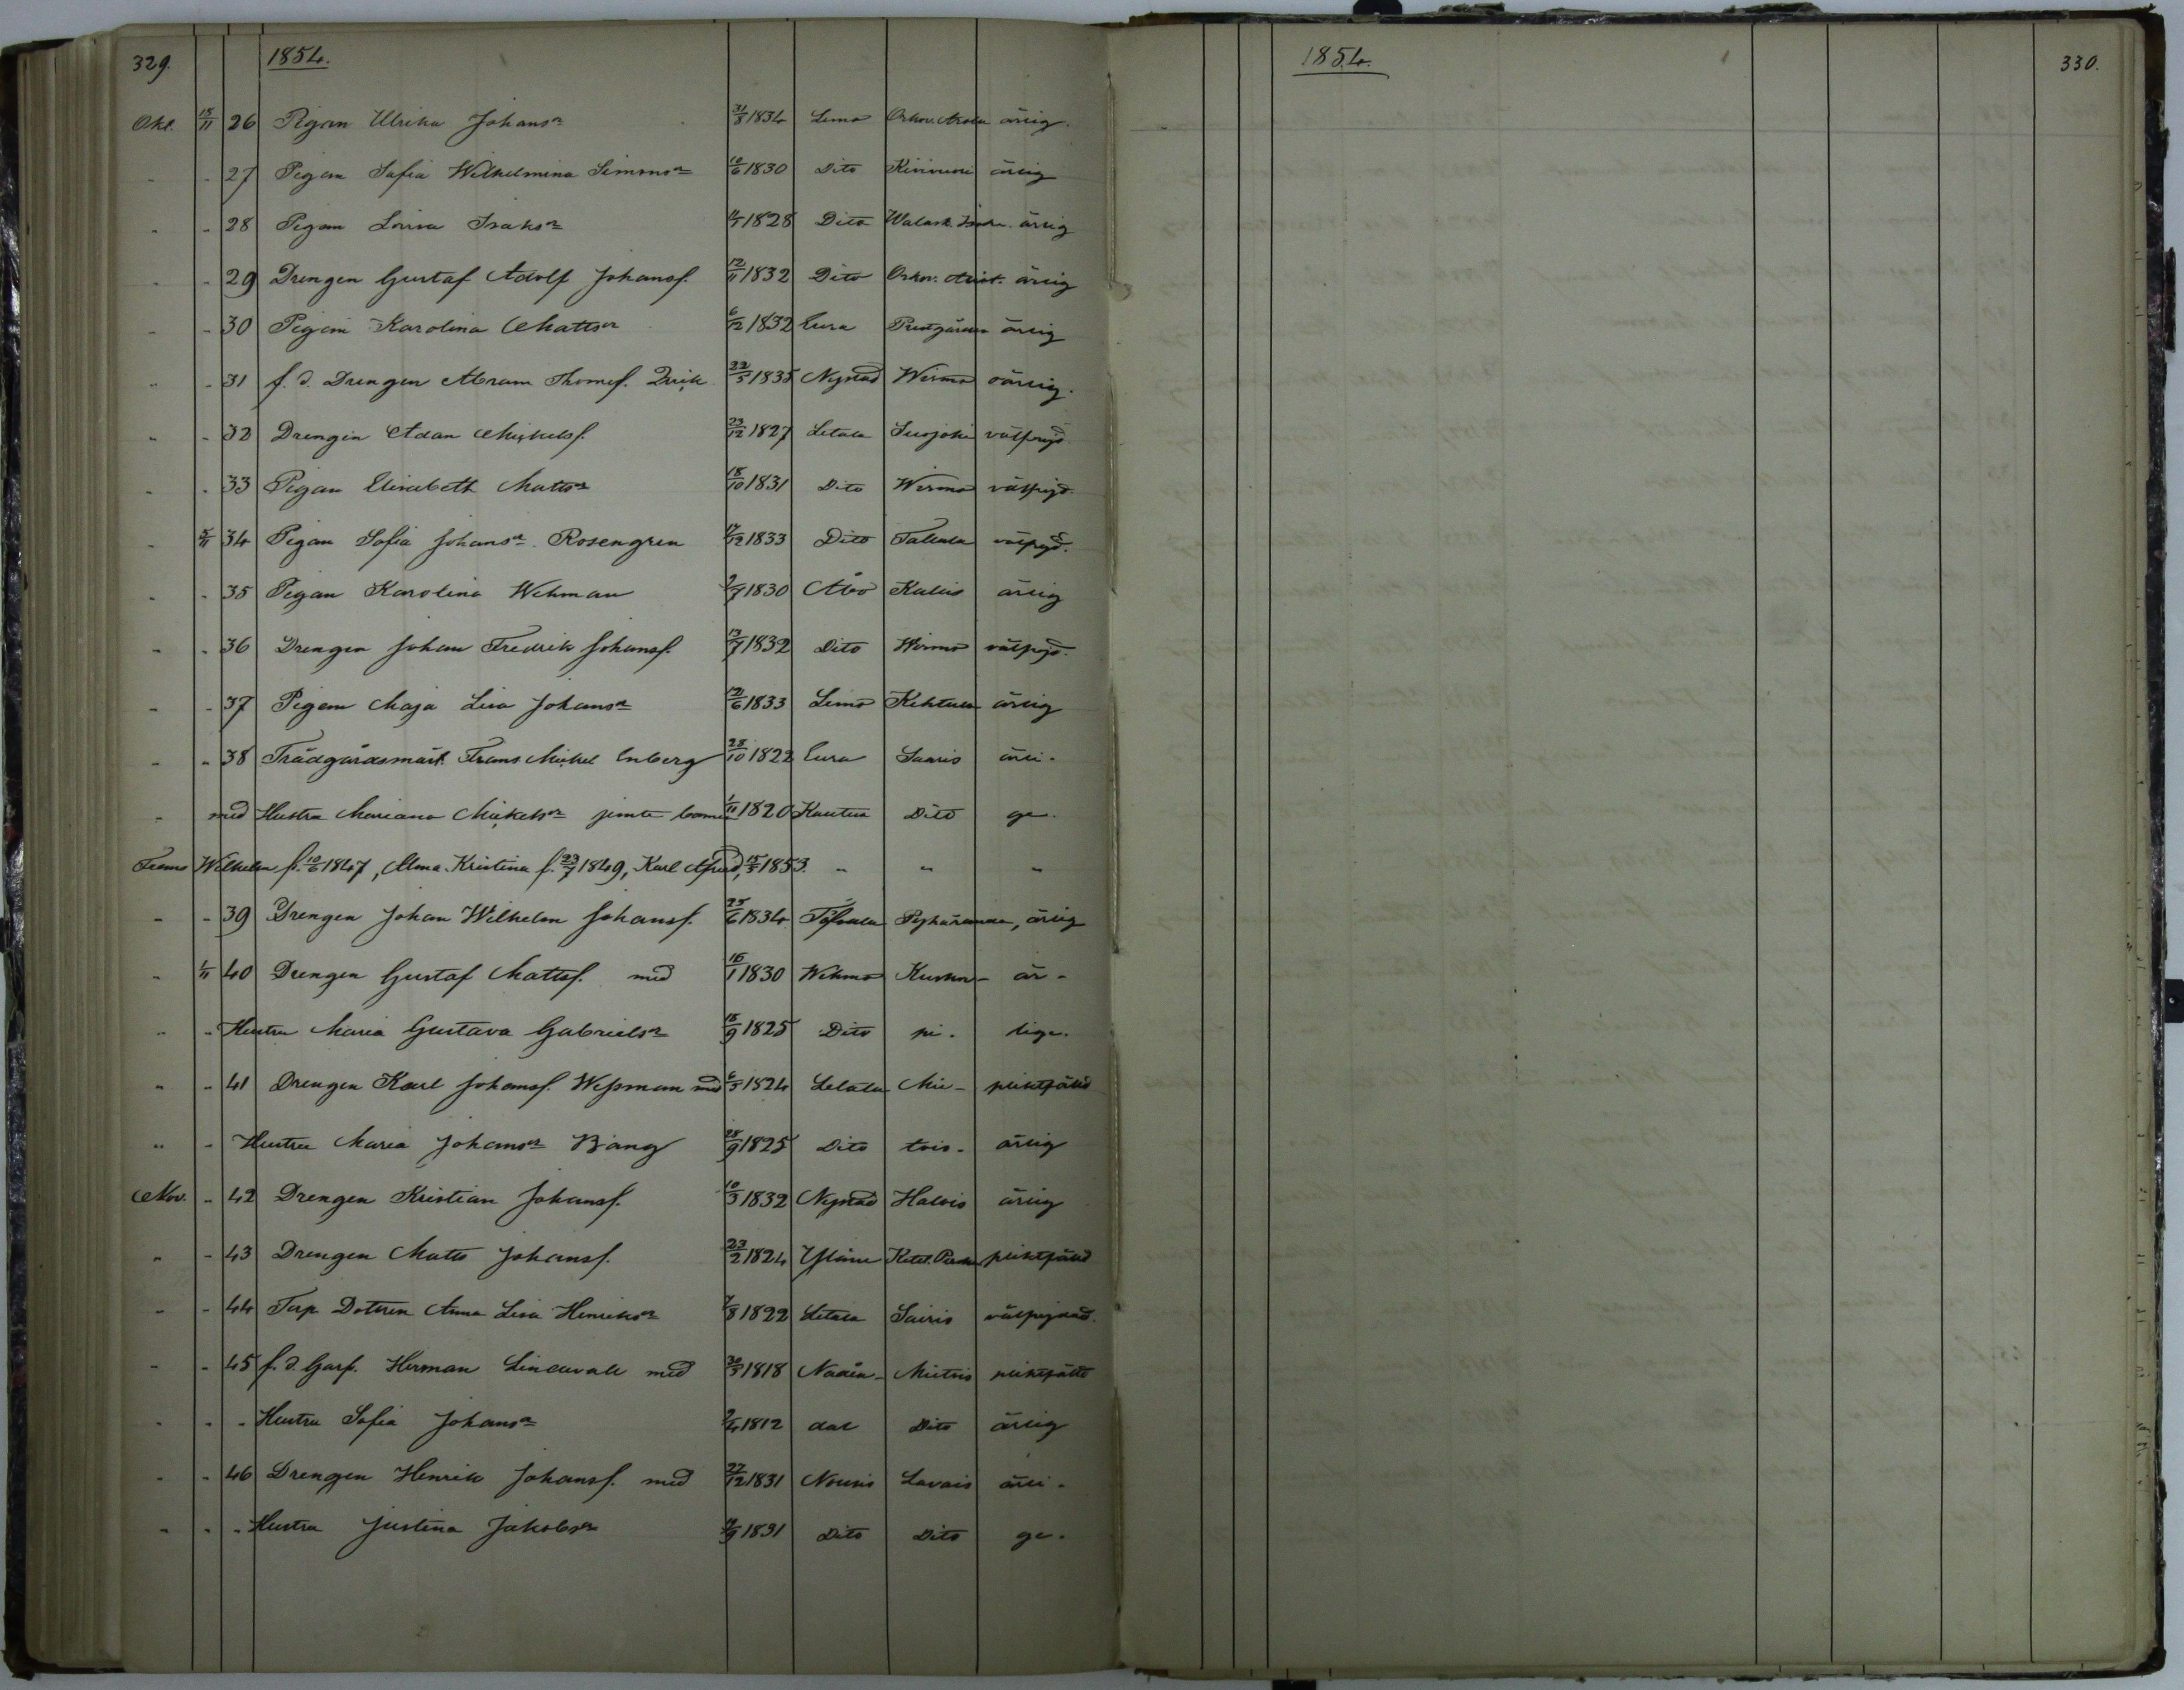 329. 1854.
Okt. 15/11 26 Pigan Ulrika Johans:r 31/8 1834 Lemo Orkov. ärlig.
" " 27 Pigan Sofia Wilhelmina Simons:r 10/6 1830 Dito ärlig
" " 28 Pigan Lovisa Isaks:r 1828 Dito Walask. ärlig
" " 29 Drengen Gustaf Adolf Johansf. 12/11 1832 Dito Orkov. ärlig
" " 30 Pigan Karolina Mattsr 6/12 1832 Eura Prestgården ärlig
" " 31 f. d. Drengen Abram Thomsf. Qvick 22/5 1835 Nystad Wirmo oärlig.
" " 32 Drengen Adam Mickelsf. 23/12 1827 Letala Suojoki välfrejd
" " 33 Pigan Elisabeth Matts:r 18/10 1831 Dito Wirmo välfrejd.
" 5/11 34 Pigan Sofia Johans:r Rosengren 17/12 1833 Dito Tallala välfrejd.
" " 35 Pigan Karolina Wekman 9/7 1830 Åbo Kallis ärlig
" " 36 Drengen Johan Fredrik Johansf. 13/7 1832 Dito Wirmo välfrejd.
" " 37 Pigan Maja Lisa Johans:r 12/6 1833 Lemo Kehtula ärlig
" " 38 Trädgårdsmäst. Frans Mickel Enberg 28/10 1822 Eura Saaris ärli-
" med Hustru Mariana Mickels:r jemte barnen 1/11 1820 Kautua Dito ge.
Frans Wilhelm f. 10/6 1847, Alma Kristina f. 23/7 1849, Karl Alfred, 15/5 1853. " " "
" " 39 Drengen Johan Wilhelm Johansf. 25/6 1834 Töfsala Pyhäranda, ärlig
" 1/11 40 Drengen Gustaf Mattsf. med 16/1 1830 Wehmo Kusko- är-
" " Hustru Maria Gustava Gabriels:r 18/9 1825 Dito pi. lige.
" " 41 Drengen Karl Johansf. Wessman med 6/5 1824 Letala Mie- pliktfäld
" " Hustru Maria Johans:r Bäng 28/9 1825 Dito tois. ärlig
Nov. " 42 Drengen Kristian Johansf. 10/3 1832 Nystad Halvis ärlig
" " 43 Drengen Matts Johansf. 23/2 1824 Yläne Ketel. pliktfäld
" " 44 Torp. Dottren Anna Lisa Henriks:r 7/8 1822 Letala Sairis välfrejdad.
" " 45 f. d. Garf. Herman Lindevall med 30/3 1818 Nåden- Mietois pliktfälld
" " " Hustru Sofia Johans:r 9/4 1812 dal Dito ärlig
" " 46 Drengen Henrik Johansf. med 22/12 1831 Nousis Lavais ärli-
" " " Hustru Justina Jakobs:r 1831 Dito Dito ge.
1854. 330.